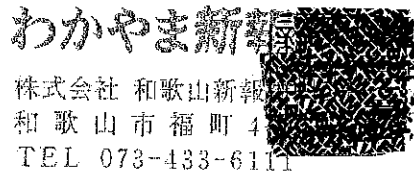 わかやま新報
株式会社 和歌山新報
和歌山市福町4
TEL 073-433-6111